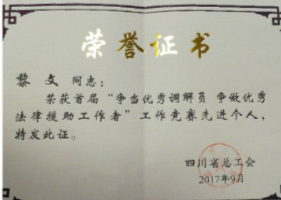 荣誉证书
黎文 同志：
荣获首届“争当优秀调解员 争做优秀
法律援助工作者”工作竞赛先进个人，
特发此证。
四川省总工会
2017年9月